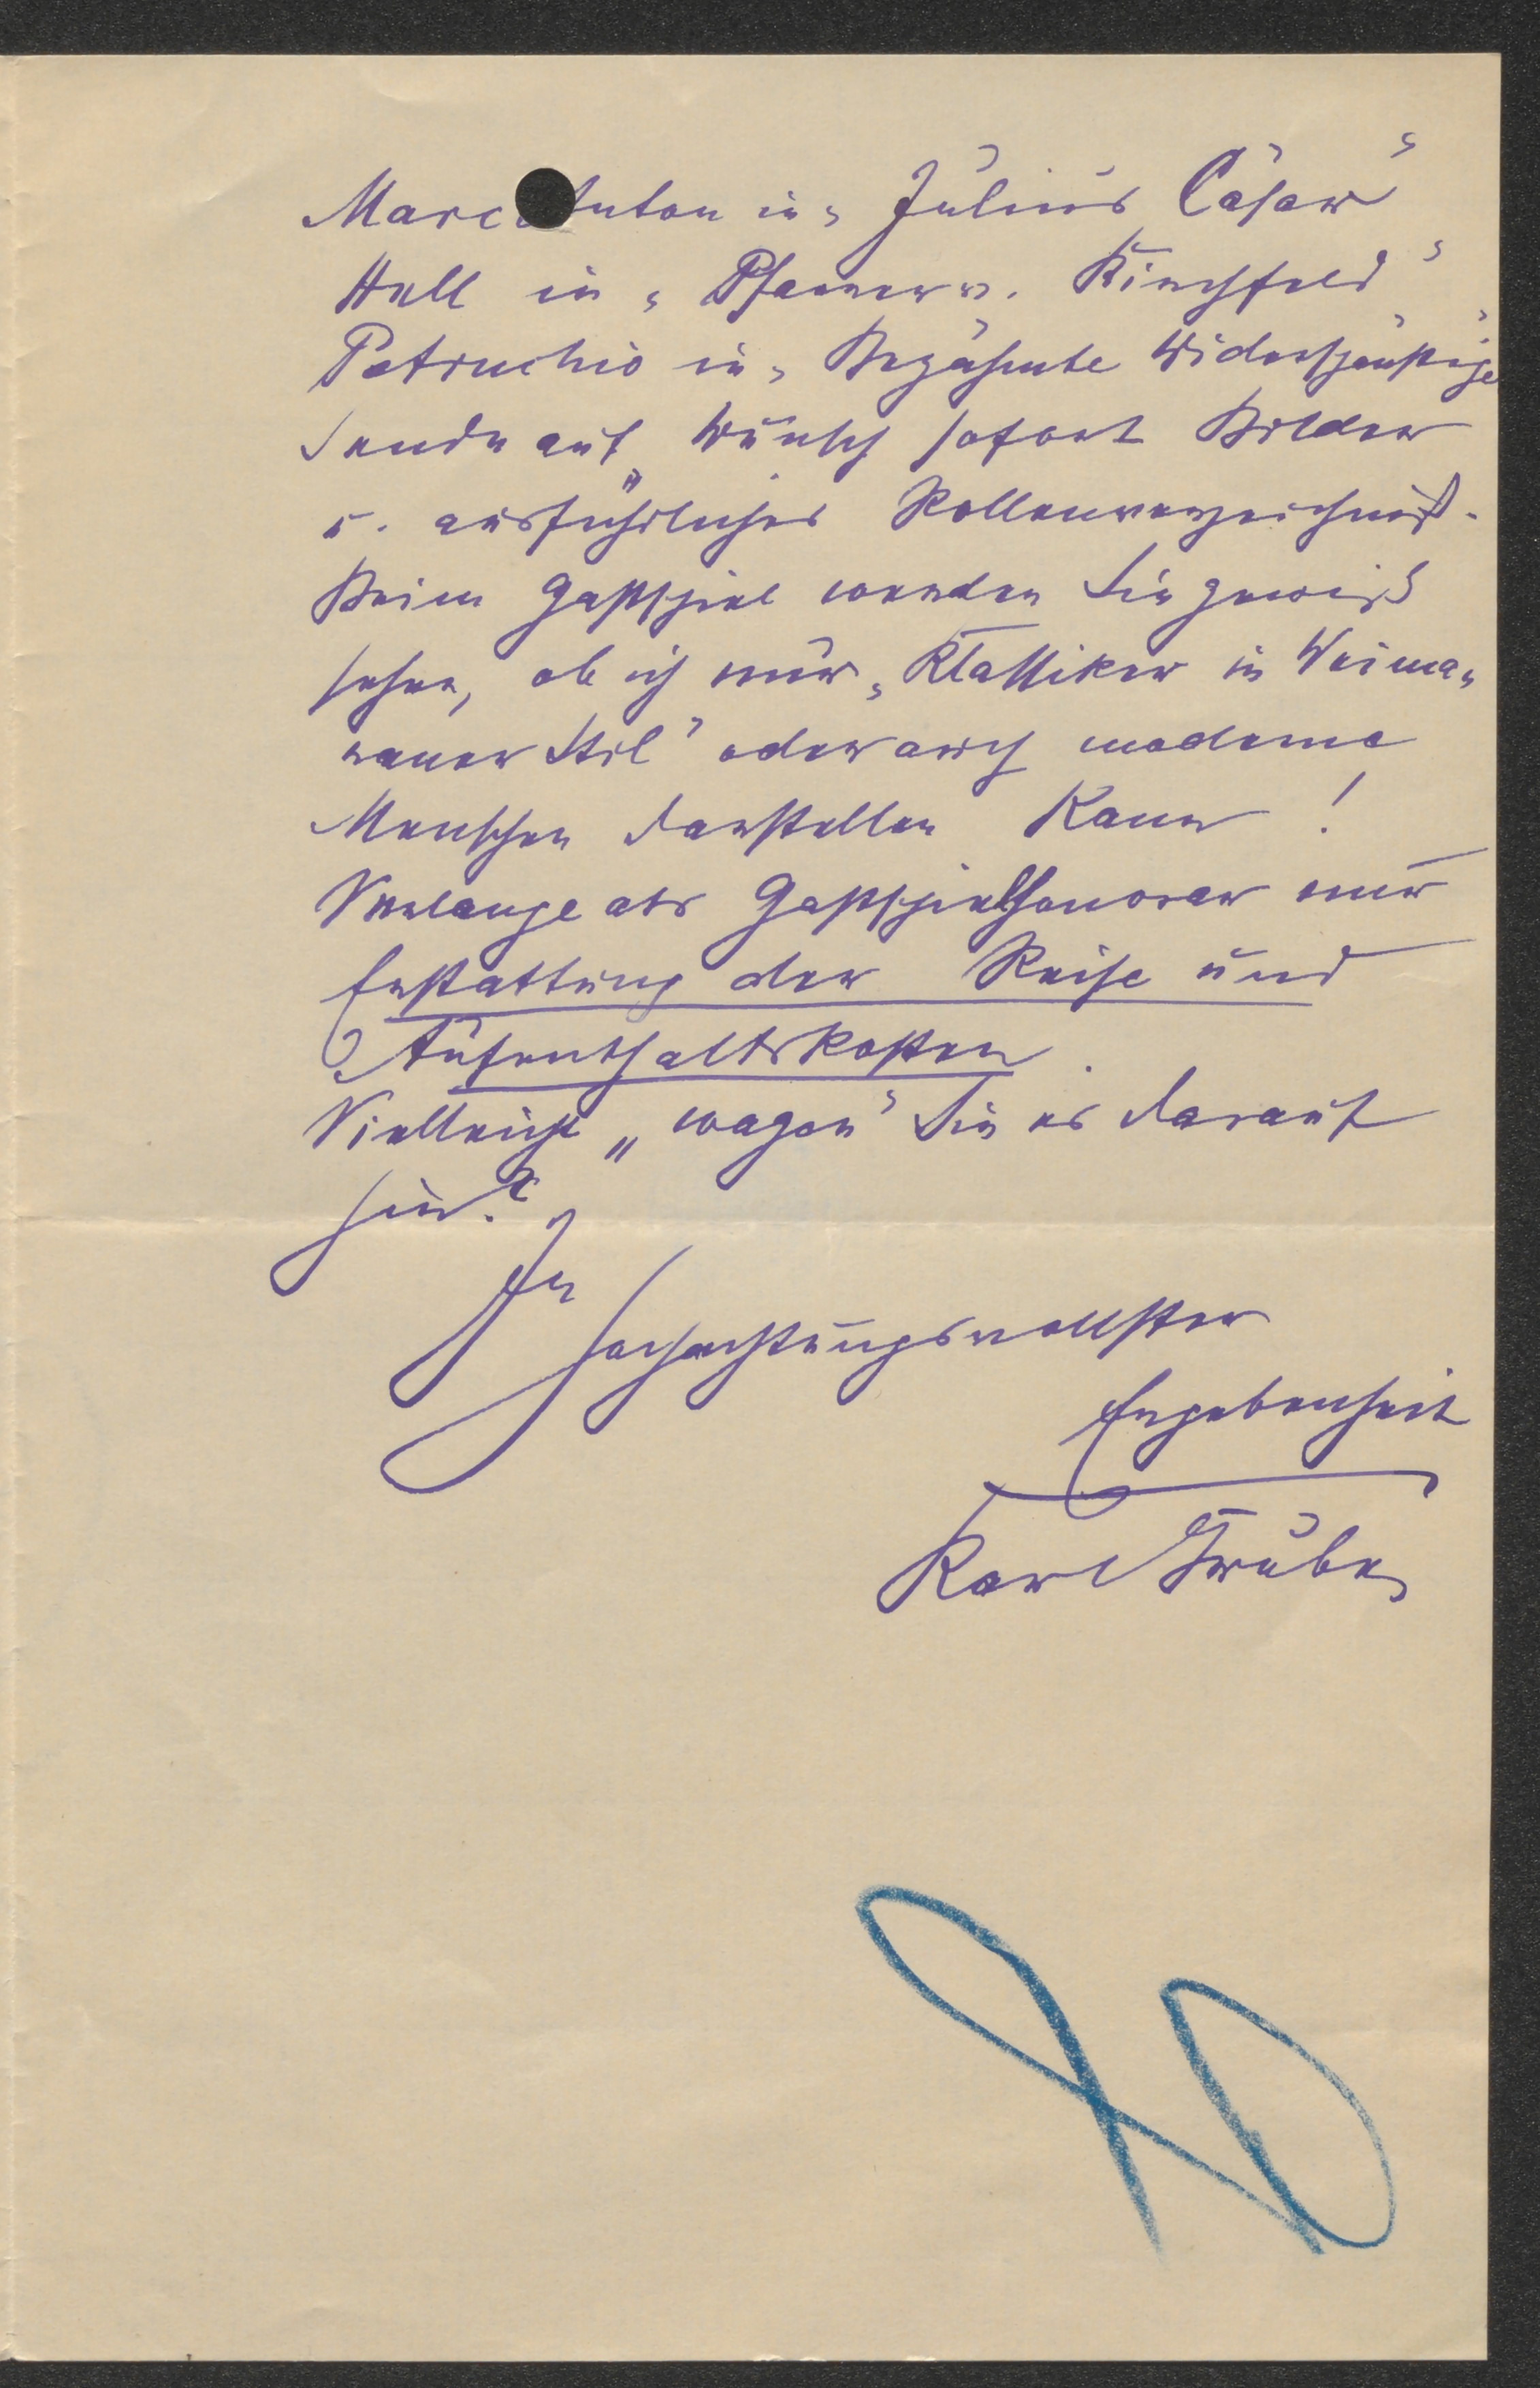 Marc Anton in „Julius Cäsar"
Hell in „Pfarrer v. Kirchfeld"
Petruchio in „Bezähmte Widerspänstige"
Sende auf Wunsch sofort Bilder
u. ausführliches Rollenverzeichniß.
Beim Gastspiel werden Sie gewiß
sehen, ob ich nur „Klassiker in Weima„
raner Stil" oder auch moderne
Menschen darstellen kann!
Verlange als Gastspielhonorar nur
Erstattung der Reise und
Aufenthaltskosten.
Vielleicht „wagen" Sie es darauf
hin?
In
hochachtungsvollster
Ergebenheit
Karl Grube